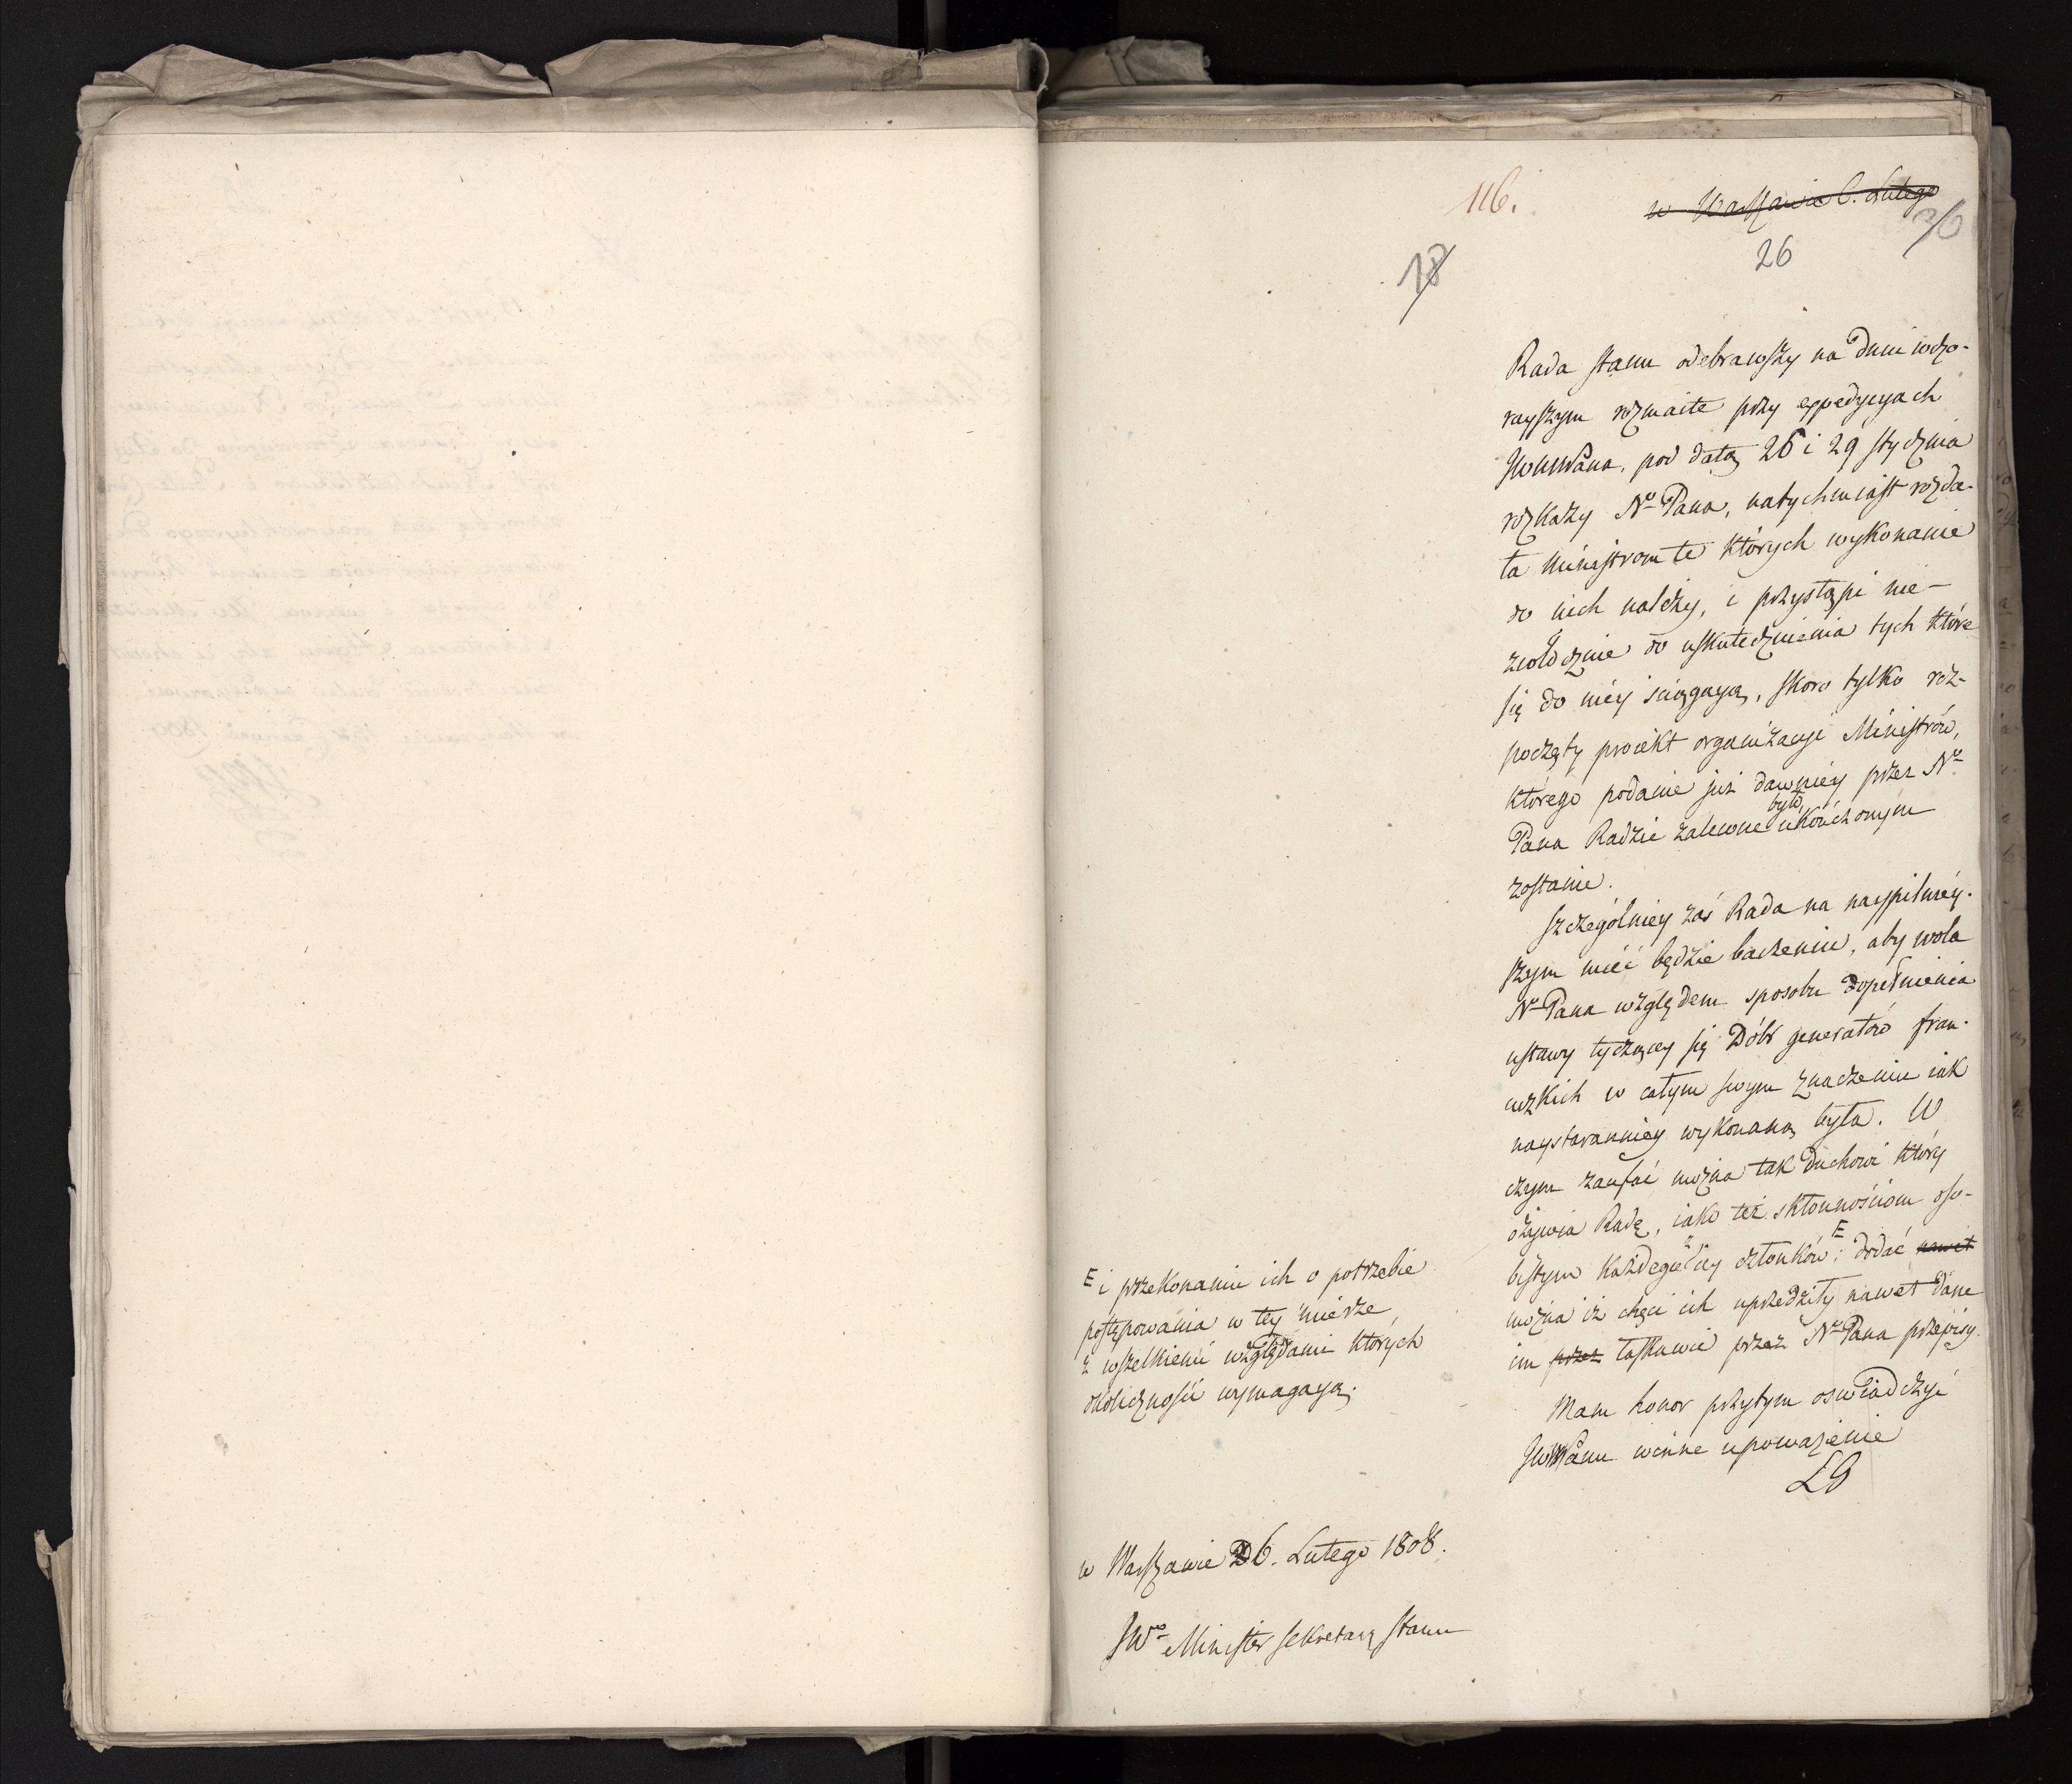 116.
w Warszawie 6. Lutego
36
26
18
Rada stanu odebrawszy na dniu wczo-
rayszym rozmaite przy expedycyach
JWW Pana, pod datą 26 i 29 stycznia
rozkazy No Pana, natychmiast rozda-
ła Ministrom te których wykonanie
do nich należy, i przystąpi nie-
zwłócznie do uskutecznienia tych które
się do niéy sciągaią, skoro tylko roz-
poczęty proiekt organizacyi Ministrów,
którego podanie już dawniéy przez No
było,
Pana Radzie zalecone ukończonym
zostanie.
Szczególniéy zaś Rada na naypilniéy-
szym mieć będzie baczeniu, aby wola
No Pana względem sposobu dopełnienia
ustawy tyczącey się Dóbr generałów fran-
cuzkich w całym swym znaczeniu iak
naystaranniéy wykonaną była. W
czym zaufać można tak duchowi który
ożywia Radę, iako też skłonnościom oso-
bistym każdego z iey członków; E dodać nawet
można iż chęci ich uprzedziły nawet dane
im przez łaskawie przez No Pana przepisy.
Mam honor przytym oswiadczyć
JWW Panu winne upoważenie
LG
E i przekonaniu ich o potrzebie
postępowania w tey mierze
z wszelkiemi względami których
okoliczności wymagaią.
w Warszawie D 6. Lutego 1808.
JWo Minister Sekretarz Stanu